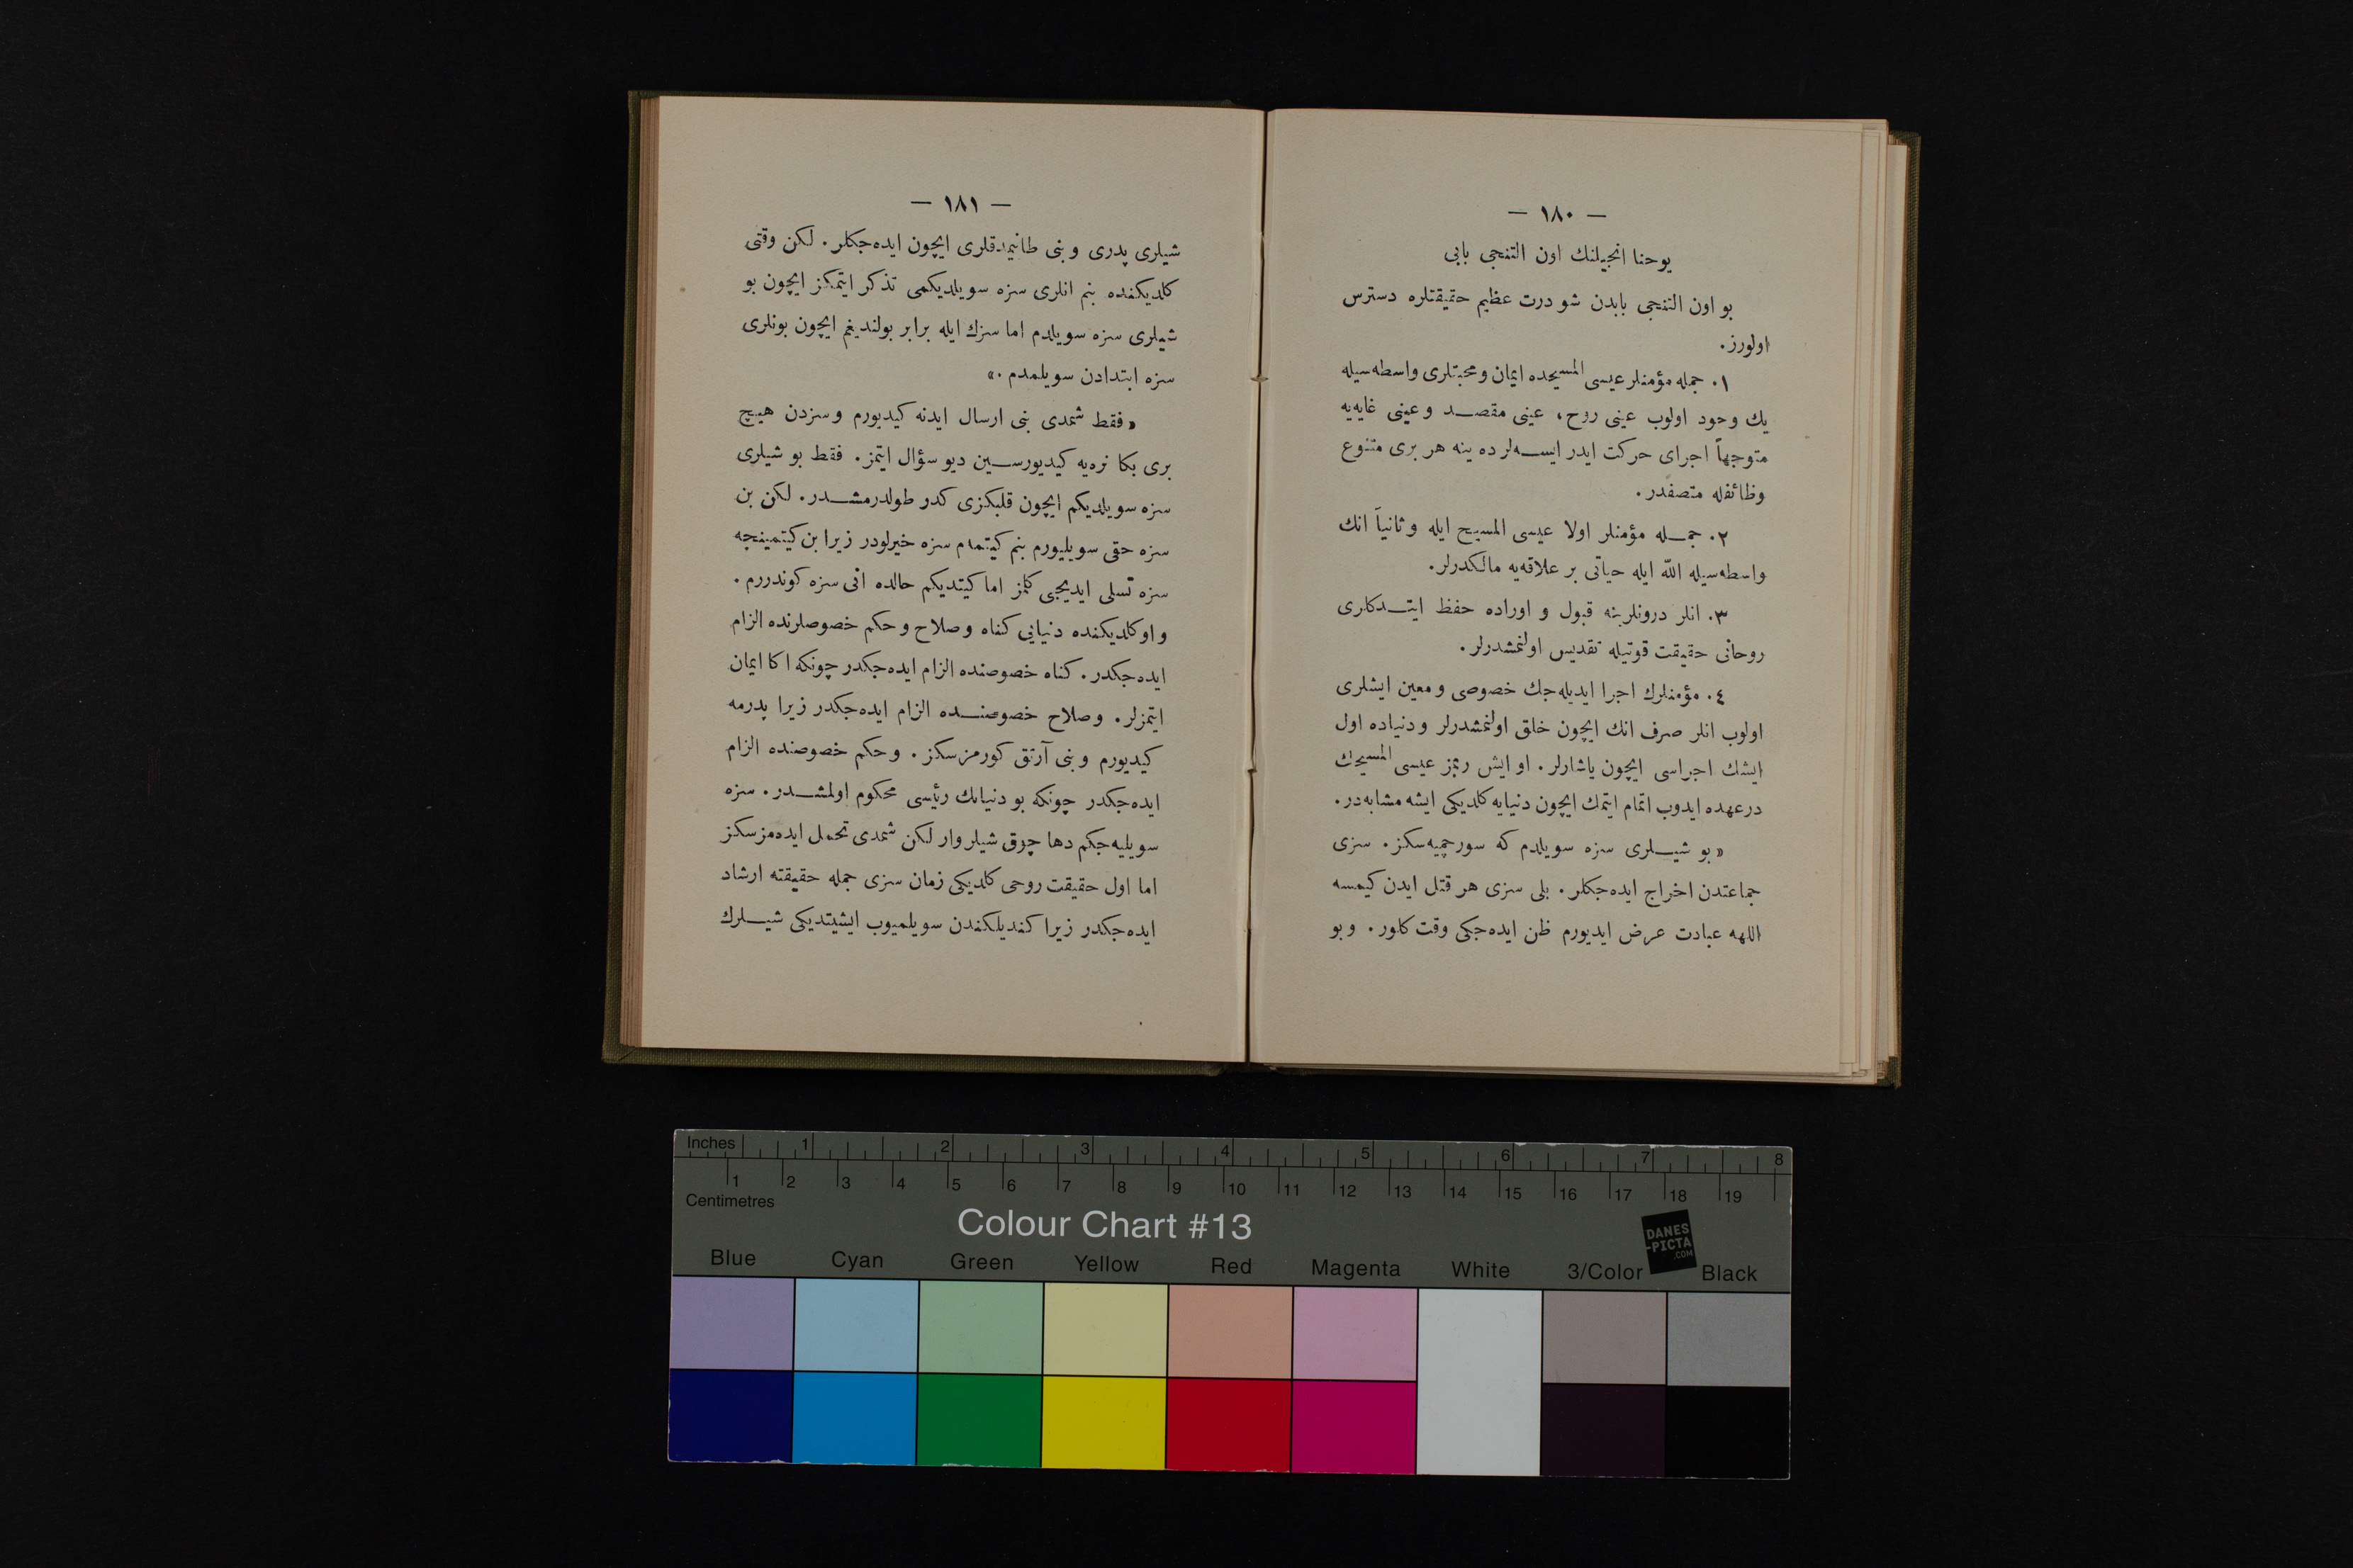 — ١٨٠ —
يوحنا انجيلنك اون التنجى بابى
بو اون التنجى بابدن شو درت عظيم حقيقتلره دسترس
اولورز.
١. جمله مؤمنلر عيسى المسيحده ايمان و محبتلرى واسطه‌سيله
يك وجود اولوب عينى روح، عينى مقصد و عينى غايه‌يه
متوجهاً اجراى حركت ايدر ايسه‌لرده ينه هر برى متنوع
وظائفله متصفدر.
٢. جمله مؤمنلر اولا عيسى المسيح ايله و ثانياً انك
واسطه‌سيله الله ايله حياتى بر علاقه‌يه مالكدرلر.
٣. انلر درونلرينه قبول و اوراده حفظ ايتدكلرى
روحانى حقيقت قوتيله تقديس اولنمشدرلر.
٤. مؤمنلرك اجرا ايديله‌جك خصوصى و معين ايشلرى
اولوب انلر صرف انك ايچون خلق اولنمشدرلر و دنياده اول
ايشك اجراسى ايچون ياشارلر. او ايش ربمز عيسى المسيحك
درعهده ايدوب اتمام ايتمك ايچون دنيايه كلديكى ايشه مشابه‌در.
«بو شيلرى سزه سويلدم كه سورچميه‌سكز. سزى
جماعتدن اخراج ايده‌جكلر. بلى سزى هر قتل ايدن كيمسه
اللهه عبادت عرض ايديورم ظن ايده‌جكى وقت كلور. و بو
— ١٨١ —
شيلرى پدرى و بنى طانيمدقلرى ايچون ايده‌جكلر. لكن وقتى
كلديكنده بنم انلرى سزه سويلديكمى تذكر ايتمكز ايچون بو
شيلرى سزه سويلدم اما سزك ايله برابر بولنديغم ايچون بونلرى
سزه ابتدادن سويلمدم.»
«فقط شمدى بنى ارسال ايدنه كيديورم و سزدن هيچ
برى بكا نره‌يه كيديورسين ديو سؤال ايتمز. فقط بو شيلرى
سزه سويلديكم ايچون قلبكزى كدر طولدرمشدر. لكن بن
سزه حقى سويليورم بنم كيتمه‌م سزه خيرلودر زيرا بن كيتمينجه
سزه تسلى ايديجى كلمز اما كيتديكم حالده انى سزه كوندررم.
و او كلديكنده دنيايى كناه و صلاح و حكم خصوصلرنده الزام
ايده‌جكدر. كناه خصوصنده الزام ايده‌جكدر چونكه اكا ايمان
ايتمزلر. و صلاح خصوصنده الزام ايده‌جكدر زيرا پدرمه
كيديورم و بنى آرتق كورمزسكز. و حكم خصوصنده الزام
ايده‌جكدر چونكه بو دنيانك رئيسى محكوم اولمشدر. سزه
سويليه‌جكم دها چوق شيلر وار لكن شمدى تحمل ايده‌مزسكز
اما اول حقيقت روحى كلديكى زمان سزى جمله حقيقته ارشاد
ايده‌جكدر زيرا كنديلكندن سويلميوب ايشيتديكى شيلرك
Inches 1 2 3 4 5 6 7 8
1 2 3 4 5 6 7 8 9 10 11 12 13 14 15 16 17 18 19
Centimetres
Colour Chart #13
DANES
-PICTA
.COM
Blue Cyan Green Yellow Red Magenta White 3/Color Black